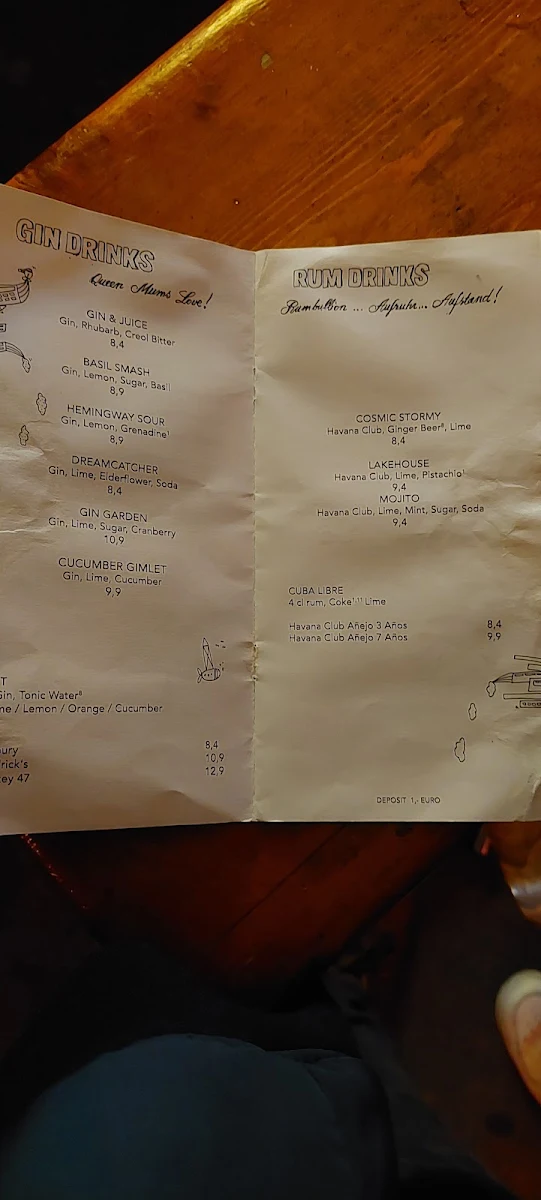 GIN DRINKS
Queen Mums Love!
GIN & JUICE
Gin, Rhubarb, Creol Bitter
8,4
BASIL SMASH
Gin, Lemon, Sugar, Basil
8,9
HEMINGWAY SOUR
Gin, Lemon, Grenadine¹
8,9
DREAMCATCHER
Gin, Lime, Elderflower, Soda
8,4
GIN GARDEN
Gin, Lime, Sugar, Cranberry
10,9
CUCUMBER GIMLET
Gin, Lime, Cucumber
9,9
T
Gin, Tonic Water⁸
me / Lemon / Orange / Cucumber
bury 8,4
rick's 10,9
key 47 12,9
RUM DRINKS
Rumbullion ... Aufruhr... Aufstand!
COSMIC STORMY
Havana Club, Ginger Beer⁸, Lime
8,4
LAKEHOUSE
Havana Club, Lime, Pistachio¹
9,4
MOJITO
Havana Club, Lime, Mint, Sugar, Soda
9,4
CUBA LIBRE
4 cl rum, Coke¹,¹¹ Lime
Havana Club Añejo 3 Años 8,4
Havana Club Añejo 7 Años 9,9
DEPOSIT 1,- EURO